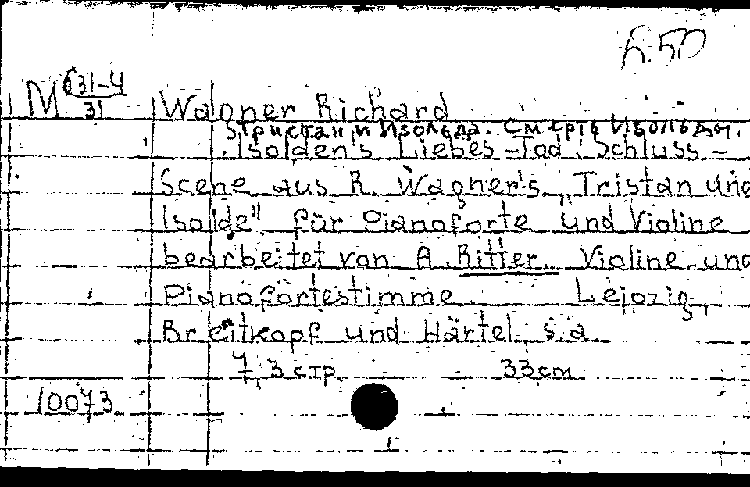 6.50
M 631-4
31
Wagner Richard
Тристан и Изольда. Смерть Изольды.
Isolden's Liebes-Tod. Schluss-
Scene aus R. Wagner's „Tristan und
Isolde" für Pianoforte und Violine
bearbeitet von A. Ritter. Violine und
Pianofortestimme. Leipzig,
Breitkopf und Härtel, s.a.
7, 3 стр. 33cm
10073